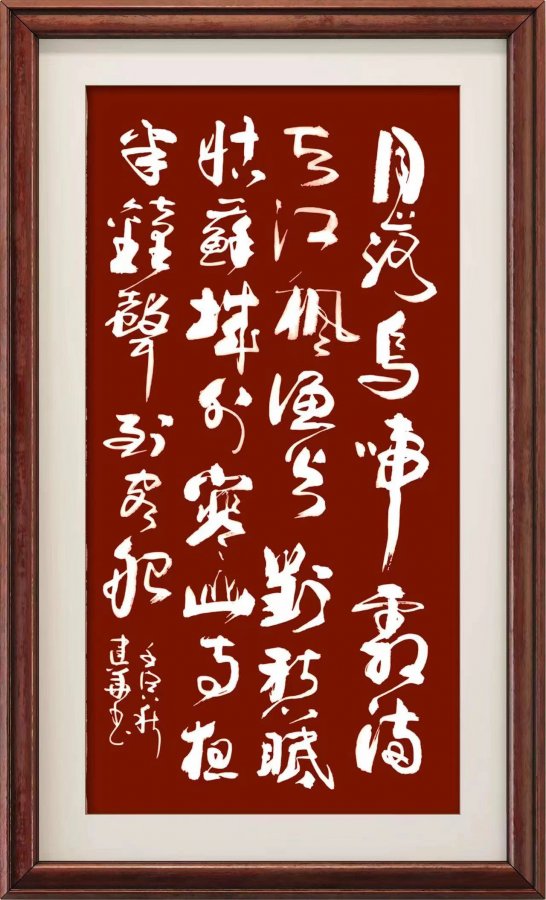 月落烏啼霜滿
天江楓漁火對愁眠
姑蘇城外寒山寺夜
半鐘聲到客船
建華書